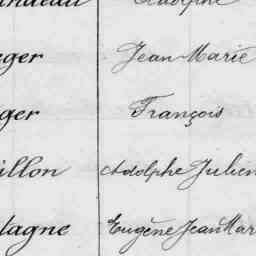 Adolphe
eger Jean Marie
ger François
illon Adolphe Julien
tagne Eugène Jean Mar